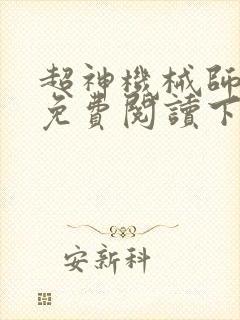 超神機械師
免費閱讀下
安新科